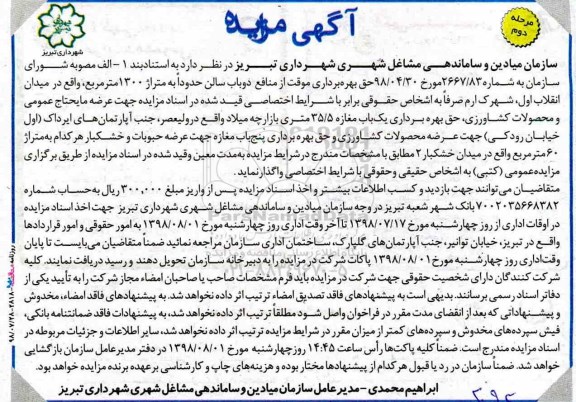 مرحله
دوم
آگهی مزایده
شهرداری تبریز
سازمان میادین و ساماندهی مشاغل شهری شهرداری تبریز در نظر دارد به استناد بند ۱-الف مصوبه شورای
سازمان به شماره ۲۶۶۷/۸۳ مورخ ۹۸/۰۴/۳۰ حق بهره‌برداری موقت از منافع دوباب سالن حدوداً به متراژ ۱۳۰۰ مترمربع، واقع در میدان
انقلاب اول، شهرک ارم صرفاً به اشخاص حقوقی برابر با شرایط اختصاصی قید شده در اسناد مزایده جهت عرضه مایحتاج عمومی
و محصولات کشاورزی، حق بهره برداری یک‌باب مغازه ۳۵/۵ متری بازارچه میلاد واقع درولیعصر، جنب آپارتمان‌های ایرداک (اول
خیابان رودکی) جهت عرضه محصولات کشاورزی و حق بهره برداری پنج‌باب مغازه جهت عرضه حبوبات و خشکبار هرکدام به‌متراژ
۶۰ مترمربع واقع در میدان خشکبار ۲ مطابق با مشخصات مندرج در شرایط مزایده به‌مدت معین وقید شده در اسناد مزایده از طریق برگزاری
مزایده عمومی (کتبی) به اشخاص حقیقی و حقوقی با شرایط اختصاصی واگذار نماید.
متقاضیان می‌توانند جهت بازدید و کسب اطلاعات بیشتر و اخذ اسناد مزایده پس از واریز مبلغ ۳۰۰,۰۰۰ ریال به‌حساب شماره
۷۰۰۲۰۳۵۶۶۸۳۸۲ بانک شهر شعبه تبریز در وجه سازمان میادین و ساماندهی مشاغل شهری شهرداری تبریز جهت اخذ اسناد مزایده
در اوقات اداری از روز چهارشنبه مورخ ۱۳۹۸/۰۷/۱۷ تا آخر وقت اداری روز چهارشنبه مورخ ۱۳۹۸/۰۸/۰۱ به امور حقوقی و امور قراردادها
واقع در تبریز، خیابان توانیر، جنب آپارتمان‌های گلپارک، ساختمان اداری سازمان مراجعه نمائید ضمناً متقاضیان می‌بایست تا پایان
وقت‌اداری روز چهارشنبه مورخ ۱۳۹۸/۰۸/۰۱ پاکات شرکت در مزایده را به دبیرخانه سازمان تحویل دهند و رسید دریافت نمایند. کلیه
شرکت کنندگان دارای شخصیت حقوقی جهت شرکت در مزایده باید فرم مشخصات صاحب یا صاحبان امضاء مجاز شرکت را به تأیید یکی از
دفاتر اسناد رسمی برسانند. بدیهی است به پیشنهادهای فاقد تصدیق امضاء ترتیب اثر داده نخواهد شد. به پیشنهادهای فاقد امضاء، مخدوش
و پیشنهاداتی که بعد از انقضای مدت مقرر در فراخوان واصل شود مطلقاً ترتیب اثر داده نخواهد شد، به پیشنهادات فاقد ضمانتنامه بانکی،
فیش سپرده‌های مخدوش و سپرده‌های کمتر از میزان مقرر در شرایط مزایده ترتیب اثر داده نخواهد شد، سایر اطلاعات و جزئیات مربوطه در
اسناد مزایده مندرج است. ضمناً کلیه پاکت‌ها رأس ساعت ۱۴:۴۵ روز چهارشنبه مورخ ۱۳۹۸/۰۸/۰۱ در دفتر مدیرعامل سازمان بازگشایی
خواهد شد. ضمناً سازمان در رد یا قبول هرکدام از پیشنهادها مختار بوده و هزینه‌های چاپ و کارشناسی برعهده برنده مزایده خواهد بود.
ابراهیم محمدی - مدیرعامل سازمان میادین و ساماندهی مشاغل شهری شهرداری تبریز